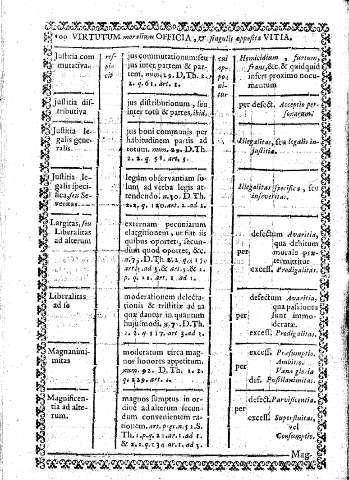 100 VIRTUTUM moralium OFFICIA, & singulis apposita VITIA,
Justitia com
mutativa.
res-
pi-
cit
jus commutationum seu
jus inter partem & par-
tem, num. 29. D. Th. 2.
2. q. 61. art. 1.
cui
ap-
po-
ni-
tur
Homicidium, furtum,
fraus, &c. & quidquid
infert proximo nocu-
mentum
Justitia dis-
tributiva
jus distributionum, seu
inter totũ & partes, ibid.
per defect. Acceptio per-
sonarum.
Justitia le-
galis gene-
ralis.
jus boni communis per
habitudinem partis ad
totum. num. 29. D. Th.
2. 2. q. 58. art. 5.
Illegalitas, seu legalis in-
justitia.
Justitia le-
galis speci-
fica, seu Se-
veritas.
legum observantiam so-
lum ad verba legis at-
tendendo. n. 30. D. Th.
2. 2. q. 120. art. 2. ad 1.
Illegalitas specifica, seu
inseveritas.
Largitas, seu
Liberalitas
ad alterum
externam pecuniarum
elargitionem, ut fiat iis
quibus oportet, secun-
dum quod oportet, &c.
per
defectum Avaritia,
qua debitum
morale præ-
termittitur
excess. Prodigalitas.
Liberalitas
ad se
moderationem delecta-
tionis & tristitiæ ad ea
quæ dantur in quantum
hujusmodi. D. Th.
2. 2. q. 117. art. 3. ad 3.
per
defectum Avaritia,
qua passiones
sunt immo-
deratæ.
excess. Prodigalitas.
Magnanimi-
mitas
moderatum circa mag-
nos honores appetitum.
num. 92. D. Th. 2. 2.
q. 129. art. 1.
per
excess. Præsumptio.
Ambitio.
Vana gloria
def. Pusillanimitas.
Magnificen-
tia ad alte-
rum.
magnos sumptus in or-
dine ad alterum secun-
dum convenientem ra-
tionem.
& 2. 2. q. 134. art. 1. ad 3.
per
defect. Parvificentia.
excess. Superfluitas,
vel
Consumptio.
Mag.